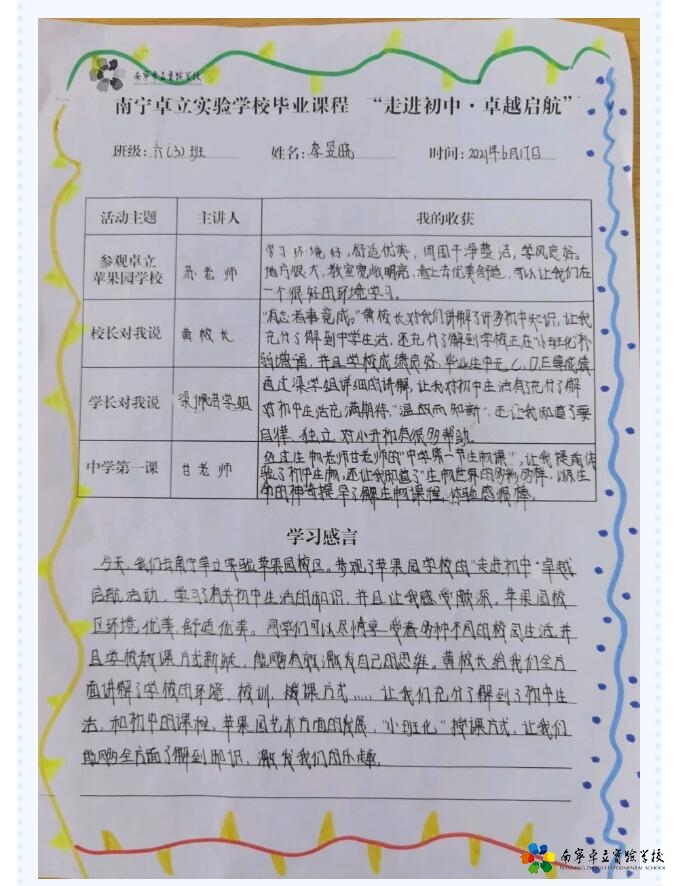 南宁卓立实验学校
南宁卓立实验学校毕业课程 “走进初中·卓越启航”
班级：六(3)班 姓名：李昱晓 时间：2021年6月17日
活动主题 主讲人 我的收获
参观卓立
苹果园学校
老师
学习环境好，舒适优美，周围干净整洁，学风良好。
地方很大，教室宽敞明亮，看上去优美舒适，可以让我们在
一个很好的环境学习。
校长对我说 黄校长
“有志者事竟成。”黄校长对我们讲解了许多初中知识，让我
充分了解到中学生活，还充分了解到学校正在“小班化”
并且学校成绩良好，毕业生中无C、D、E等成绩
学长对我说 梁 学姐
通过梁学姐详细的讲解，让我对初中生活有了充分了解
对初中生活充满期待，“温故而知新”，还让我知道了要
自律、独立，对小升初有很多帮助。
中学第一课 甘老师
经过生物老师甘老师的“中学第一节生物课”，让我提前体
验了初中生物，还让我知道了“生物世界的多种多样，以及生
命的神奇提早了解生物课程，体验感很棒。
学习感言
今天，我们去南宁卓立实验苹果园校区。参观了苹果园学校的“走进初中·卓越
启航活动，学习了有关初中生活的知识，并且让我感受颇深。苹果园校
区环境优美，舒适优美。同学们可以尽情享受着多种不同的校园生活，并
且学校教课方式新疑，能够有效激发自己的思维。黄校长给我们全方
面讲解了学校的环境、校训、授课方式……让我们充分了解到了初中生
活，和初中的课程。苹果园艺术方面的发展，“小班化”授课方式，让我们
能够全方面了解到知识，激发我们的乐趣。
南宁卓立实验学校
NANNING ZHUOLI EXPERIMENTAL SCHOOL